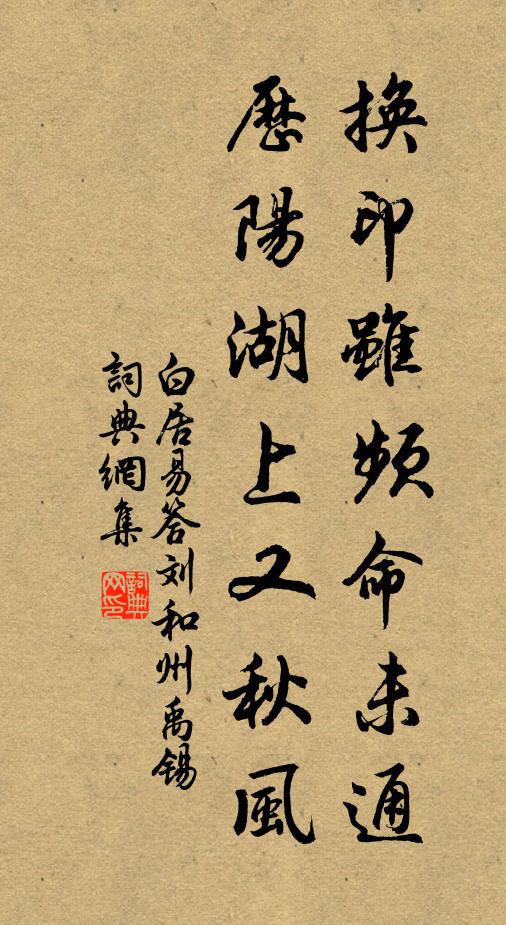 换印雖頻命未通
歷陽湖上又秋風
白居易答刘和州禹锡
詞典網集
詞典網印